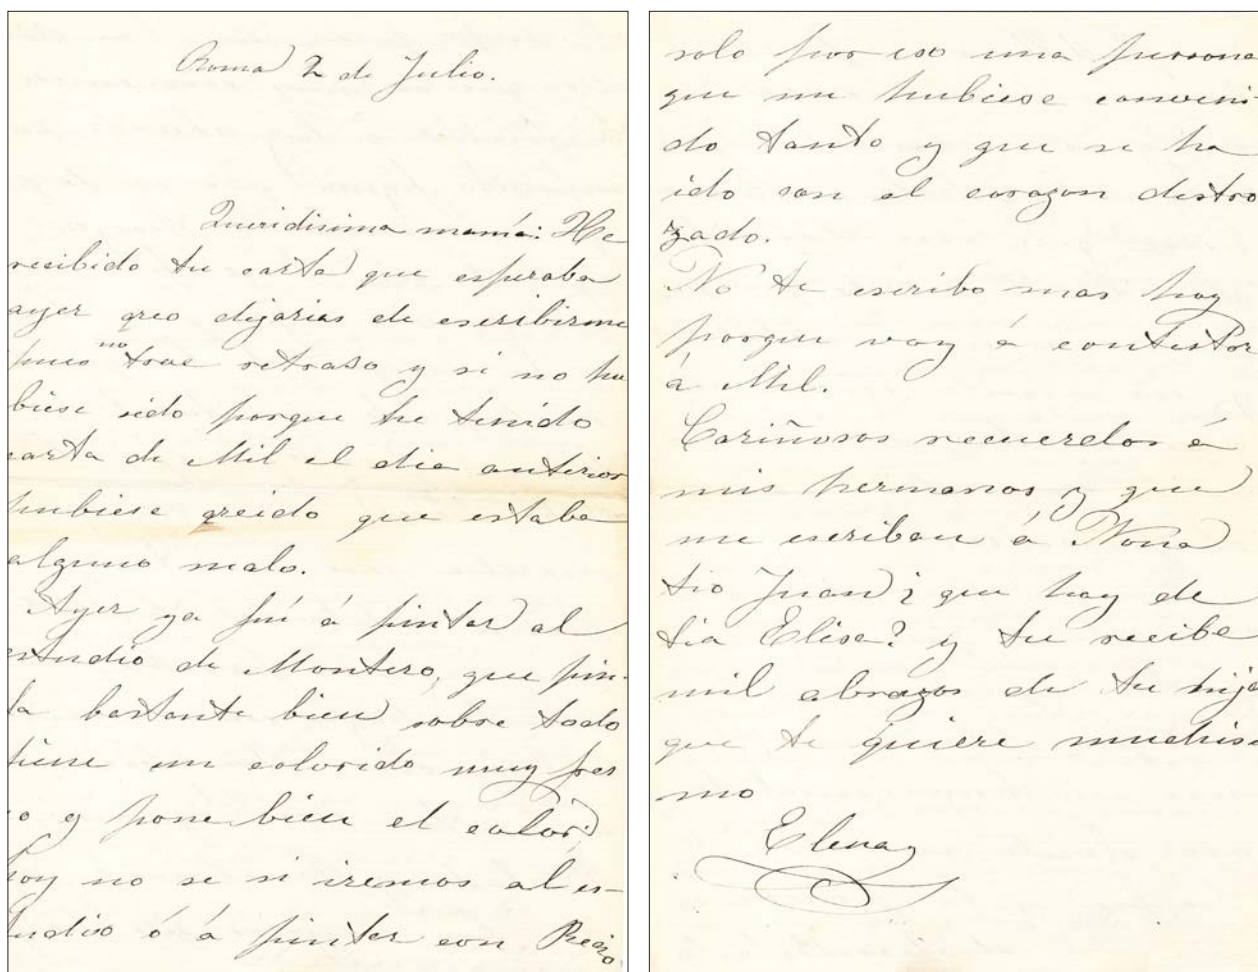 Roma 2 de Julio.
Queridisima mamá: He
recibido tu carta que esperaba
ayer creo dejarias de escribirme
pues no trae retraso y si no hu
biese sido porque he tenido
carta de Mil el dia anterior
hubiese creido que estaba
alguno malo.
Ayer ya fuí á pintar al
estudio de Montero, que pin-
ta bastante bien sobre todo
tiene un colorido muy fres
co y pone bien el color;
hoy no se si iremos al es-
tudio ó á pintar con
solo por eso una persona
que me hubiese conveni
do tanto y que se ha
ido con el corazon destro
zado.
No te escribo mas hoy
porque voy á contestar
á Mil.
Cariñosos recuerdos á
mis hermanos y que
me escriban á Nona
tio Juan ¿que hay de
tia Elisa? y tu recibe
mil abrazos de tu hija
que te quiere muchisi
mo
Elena